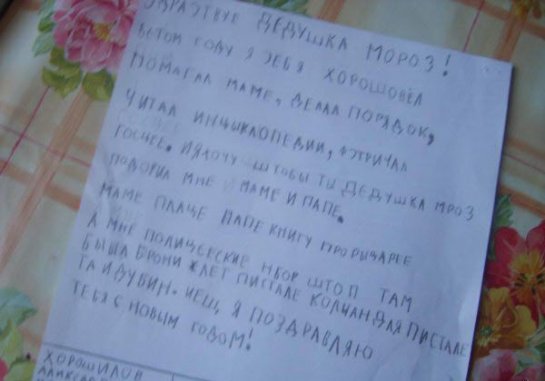 ЗДРАЗТВУЕ ДЕДУШКА МОРОЗ!
ВЕТОМ ГОДУ Я ЗЕБЯ ХОРОШОВЁЛ
ПОМАГАЛ МАМЕ, ДЕЛАЛ ПОРЯДОК,
ЧИТАЛ ИНЦЫКЛОПЕДИИ,
ГОСЧЕЕ. ИЯХОЧУ ШТОБЫ ТЫ ДЕДУШКА МРОЗ
ПОДОРИЛ МНЕ И МАМЕ И ПАПЕ.
МАМЕ ПЛАЦЕ ПАПЕ КНИГУ ПРОРЫЦАРЕЕ
А МНЕ ПОЛИЦЕЕСКИЕ НБОР ШТО П ТАМ
БЫЛА БРОНИ ЖЛЕТ ПИСТАЛЕ КОЛЧАН ДЛЯ ПИСТАЛЕ
ТА И ДУБИН. Я ПОЗДРАВЛЯЮ
ТЕБЯ С НОВЫМ ГОДОМ!
ХОРОШИЛОВ